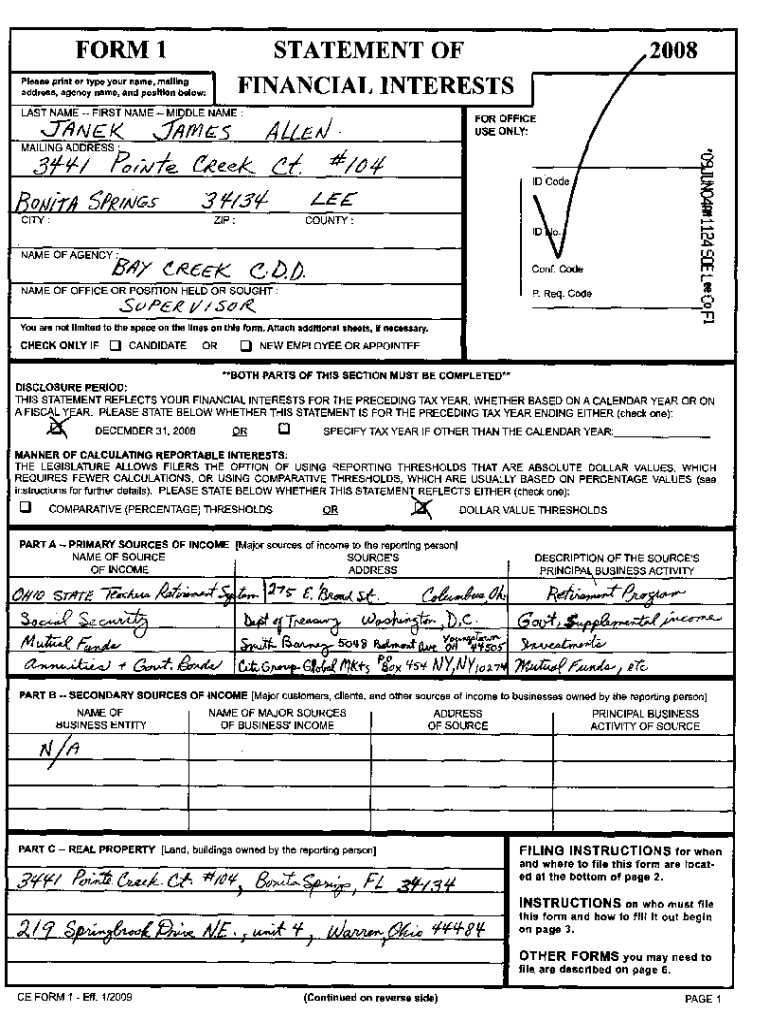 FORM 1 STATEMENT OF 2008
FINANCIAL INTERESTS
Please print or type your name, mailing
address, agency name, and position below:
LAST NAME -- FIRST NAME -- MIDDLE NAME :
JANEK JAMES ALLEN
MAILING ADDRESS :
3441 Pointe Creek Ct. #104
BONITA SPRINGS 34134 LEE
CITY : ZIP : COUNTY :
NAME OF AGENCY :
BAY CREEK C.D.D.
NAME OF OFFICE OR POSITION HELD OR SOUGHT :
SUPERVISOR
You are not limited to the space on the lines on this form. Attach additional sheets, if necessary.
CHECK ONLY IF CANDIDATE OR NEW EMPLOYEE OR APPOINTEE
FOR OFFICE
USE ONLY:
ID Code
ID No.
Conf. Code
P. Req. Code
'09JUN04AM1124 SOE Lee Co Fl
**BOTH PARTS OF THIS SECTION MUST BE COMPLETED**
DISCLOSURE PERIOD:
THIS STATEMENT REFLECTS YOUR FINANCIAL INTERESTS FOR THE PRECEDING TAX YEAR, WHETHER BASED ON A CALENDAR YEAR OR ON
A FISCAL YEAR. PLEASE STATE BELOW WHETHER THIS STATEMENT IS FOR THE PRECEDING TAX YEAR ENDING EITHER (check one):
DECEMBER 31, 2008 OR SPECIFY TAX YEAR IF OTHER THAN THE CALENDAR YEAR:
MANNER OF CALCULATING REPORTABLE INTERESTS:
THE LEGISLATURE ALLOWS FILERS THE OPTION OF USING REPORTING THRESHOLDS THAT ARE ABSOLUTE DOLLAR VALUES, WHICH
REQUIRES FEWER CALCULATIONS, OR USING COMPARATIVE THRESHOLDS, WHICH ARE USUALLY BASED ON PERCENTAGE VALUES (see
instructions for further details). PLEASE STATE BELOW WHETHER THIS STATEMENT REFLECTS EITHER (check one):
COMPARATIVE (PERCENTAGE) THRESHOLDS OR DOLLAR VALUE THRESHOLDS
PART A -- PRIMARY SOURCES OF INCOME [Major sources of income to the reporting person]
NAME OF SOURCE SOURCE'S DESCRIPTION OF THE SOURCE'S
OF INCOME ADDRESS PRINCIPAL BUSINESS ACTIVITY
OHIO STATE Teachers Retirement System 275 E. Broad St. Columbus, Oh. Retirement Program
Social Security Dept of Treasury Washington, D.C. Govt. Supplemental income
Mutual Funds Smith Barney 5048 Belmont Ave Youngstown OH 44505 Investments
Annuities + Govt. Bonds Citi Group Global Mkts P.O. Box 454 NY, NY 10274 Mutual Funds, etc
PART B -- SECONDARY SOURCES OF INCOME [Major customers, clients, and other sources of income to businesses owned by the reporting person]
NAME OF NAME OF MAJOR SOURCES ADDRESS PRINCIPAL BUSINESS
BUSINESS ENTITY OF BUSINESS' INCOME OF SOURCE ACTIVITY OF SOURCE
N/A
PART C -- REAL PROPERTY [Land, buildings owned by the reporting person]
3441 Pointe Creek Ct. #104, Bonita Springs, FL 34134
219 Springbrook Drive N.E., unit 4, Warren, Ohio 44484
FILING INSTRUCTIONS for when
and where to file this form are locat-
ed at the bottom of page 2.
INSTRUCTIONS on who must file
this form and how to fill it out begin
on page 3.
OTHER FORMS you may need to
file are described on page 6.
CE FORM 1 - Eff. 1/2009 (Continued on reverse side) PAGE 1